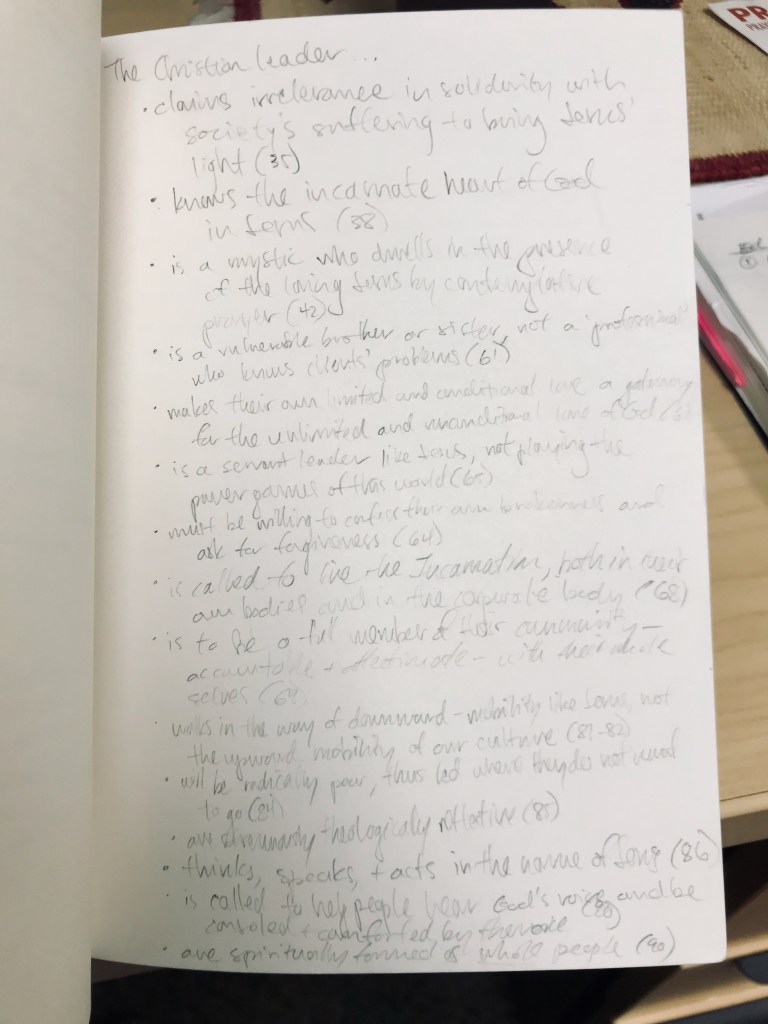 The Christian leader...
• claims irrelevance in solidarity with
society's suffering to bring Jesus'
light (35)
• knows the incarnate heart of God
in Jesus (38)
• is a mystic who dwells in the presence
of the loving Jesus by contemplative
prayer (42)
• is a vulnerable brother or sister, not a "professional"
who knows clients' problems (61)
• makes their own limited and conditional love a gateway
for the unlimited and unconditional love of God
• is a servant leader like Jesus, not playing the
power games of this world (63)
• must be willing to confess their own brokenness and
ask for forgiveness (64)
• is called to live the Incarnation, both in their
own bodies and in the corporate body (68)
• is to be a full member of their community –
accountable + affectionate – with their whole
selves (69)
• walks in the way of downward-mobility like Jesus, not
the upward mobility of our culture (81-82)
• will be radically poor, thus led where they do not want
to go (84)
• are strenuously theologically reflective (85)
• thinks, speaks, + acts in the name of Jesus (86)
• is called to help people hear God's voice and be
consoled + comforted by
• are spiritually formed as whole people (90)
PR
PRAY